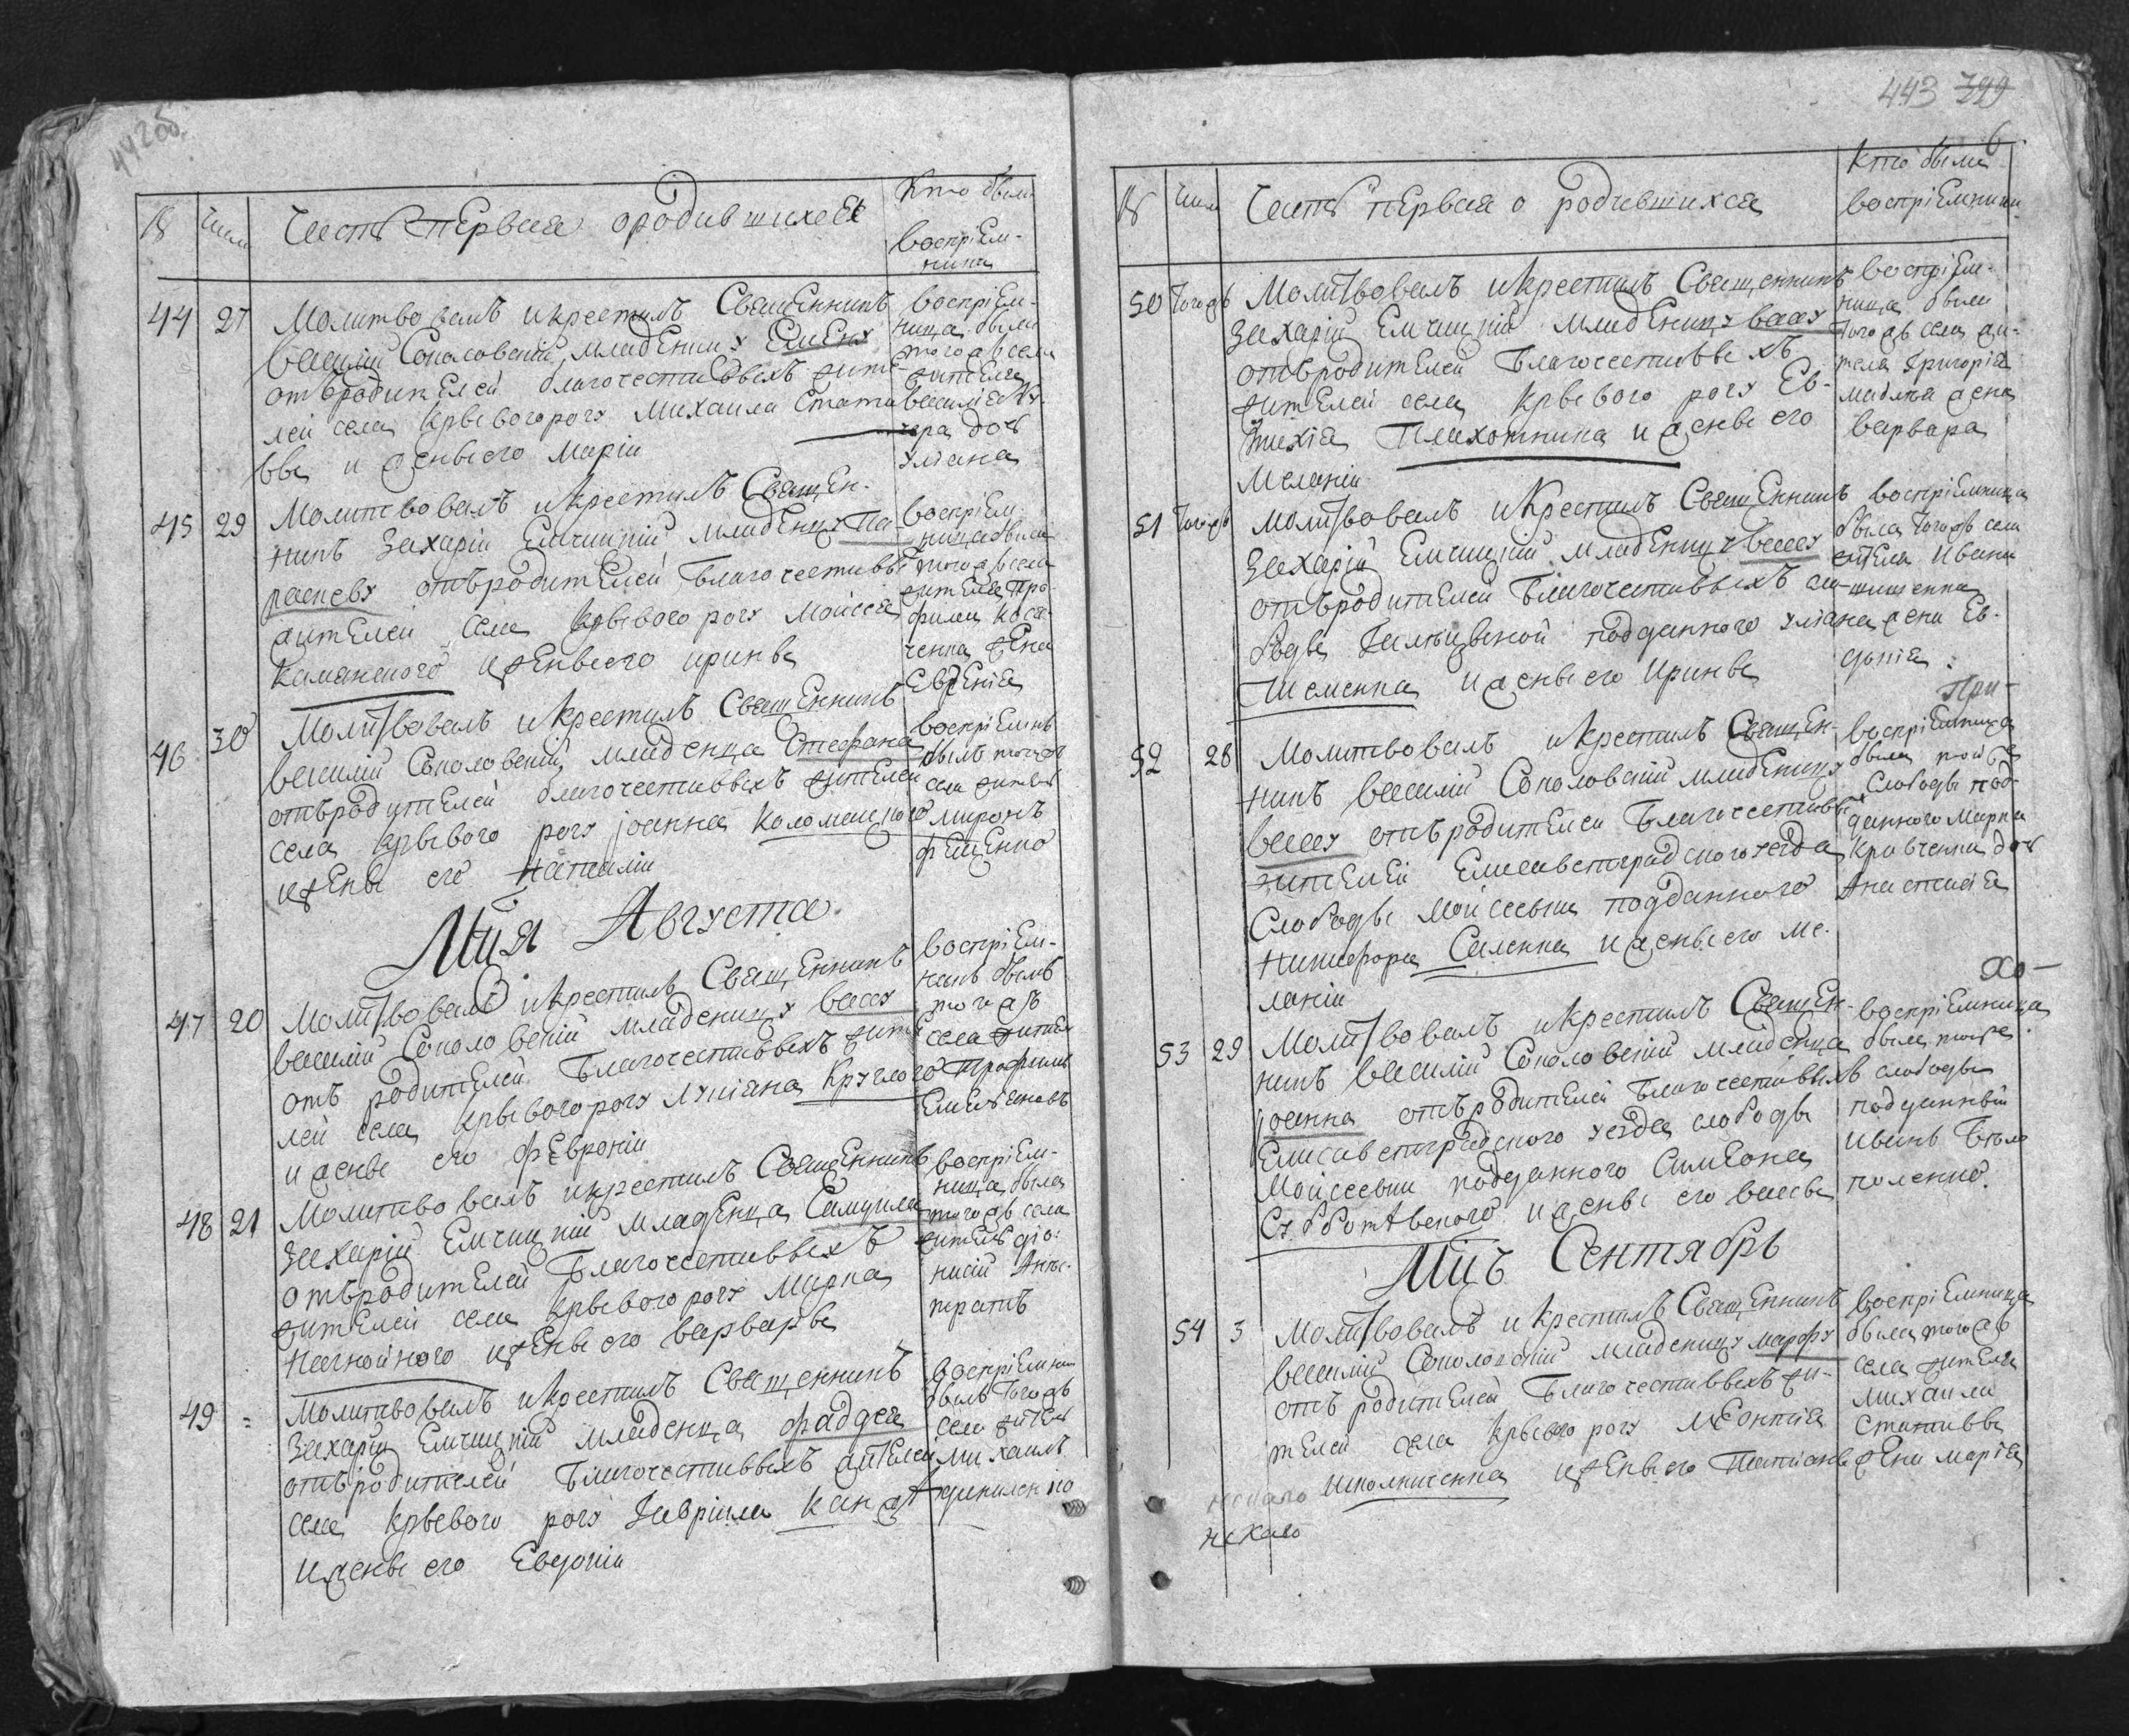 442 об.
№ Числ Часть первая о родившихся Кто были восприемники
44 27 Молитвовалъ и крестилъ Священникъ
Василій Соколовскій младенцу Елену
отъ родителей благочестивыхъ жите-
лей села Кривого рогу Михаила Стати-
вы и жены его Маріи
восприем-
ница была
того жъ села
жителя
Василія Ку-
чера дочь
Уліана
45 29 Молитвовалъ и крестилъ Священ-
никъ Захарій Емчицкій младенцу Па-
раскеву отъ родителей благочестивы
жителей села Кривого рогу Моисея
Каманского и жены его Ирины
восприем
ница была
того жъ села
жителя Тро-
фима Коса-
ченка жена
Евгенія
46 30 Молитвовалъ и крестилъ Священникъ
Василій Соколовскій младенца Стефана
отъ родителей благочестивыхъ жителей
села Кривого рогу Іоанна Коломацкого
и жены его Наталіи
восприемникъ
былъ того жъ
села житель
Миронъ
Фещенко
Мца Августа
47 20 Молитвовалъ и крестилъ Священникъ
Василій Соколовскій младенцу Вассу
отъ родителей благочестивыхъ жите
лей села Кривого рогу Лукіана Круглого
и жены его Февроніи
восприем-
никъ былъ
того жъ
села житель
Трофимъ
Емельяновъ
48 21 Молитвовалъ и крестилъ Священникъ
Захарій Емчицкій младенца Самуила
отъ родителей благочестивыхъ
жителей села Кривого рогу Марка
Нагнойного и жены его Варвары
восприем-
ница была
того жъ села
житель Діо-
нисій
49 = Молитвовалъ и крестилъ Священникъ
Захарій Емчицкій младенца Фаддея
отъ родителей благочестивыхъ жителей
села Кривого рогу Гавріила
и жены его Евдокіи
восприемник
былъ того жъ
села житель
Михаилъ
443 799
6
№ Числ Часть первая о родившихся Кто были восприемники
50 Того жъ Молитвовалъ и крестилъ Священникъ
Захарій Емчицкій младенцу Вассу
отъ родителей благочестивыхъ
жителей села Кривого рогу Ев-
тихія Плахотника и жены его
Меланіи
восприем-
ница была
того жъ села жи-
теля Григорія
жена
Варвара
51 Того жъ Молитвовалъ и крестилъ Священникъ
Захарій Емчицкій младенцу Вассу
отъ родителей благочестивыхъ сло-
боды подданного Уліана
Шеменка и жены его Ирины
восприемница
была того жъ села
жителя Ивана
жена Ев-
докія
52 28 Молитвовалъ и крестилъ Священ-
никъ Василій Соколовскій младенцу
Вассу отъ родителей благочестивы
жителей Елисаветградского уезда
слободы Мойсеевки подданного
Никифора Саленка и жены его Ме-
ланіи
При-
восприемница
была той же
слободы под-
данного Марка
Кравченка дочь
Анастасія
53 29 Молитвовалъ и крестилъ Священ-
никъ Василій Соколовскій младенца
Іоанна отъ родителей благочестивыхъ
Елисаветградского уезда слободы
Мойсеевки подданного Симеона
и жены его Вассы
Хо-
восприемница
была той же
слободы
подданный
Иванъ Бѣло
поленко
Мцъ Сентябрь
54 3 Молитвовалъ и крестилъ Священникъ
Василій Соколовскій младенцу Марфу
отъ родителей благочестивыхъ жи-
телей села Кривого рогу Леонтія
Исполниченка и жены его Татіаны
восприемница
была того жъ
села жителя
Михаила
Стативы
жена Марія